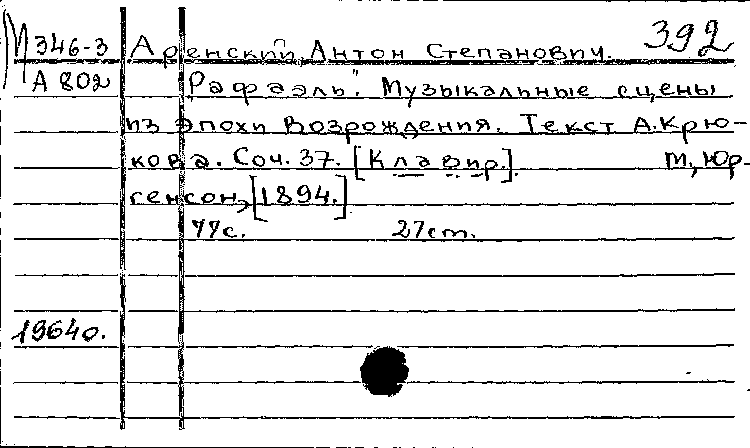 М 346-3 Аренский, Антон Степанович. 392
А 802 "Рафаэль". Музыкальные сцены
из эпохи Возрождения. Текст А. Крю-
кова. Соч. 37. [Клавир]. М, Юр-
генсон, [1894.]
77с. 27см.
1964о.